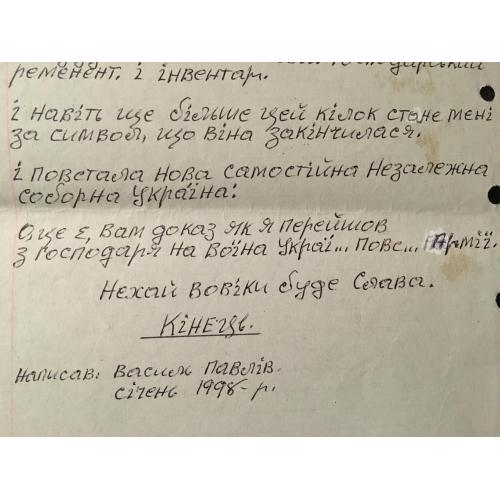 ременент. і інвентар.
і навіть ще більше цей кілок стане мені
за символ, що віна закінчилася.
і повстала нова самостійна Незалежна
соборна Україна!
О, це є, вам доказ як я перейшов
з господаря на воїна Украї... Повс... Армії.
Нехай вовіки буде Слава.
Кінець.
Написав: Василь Павлів.
січень 1998-р.